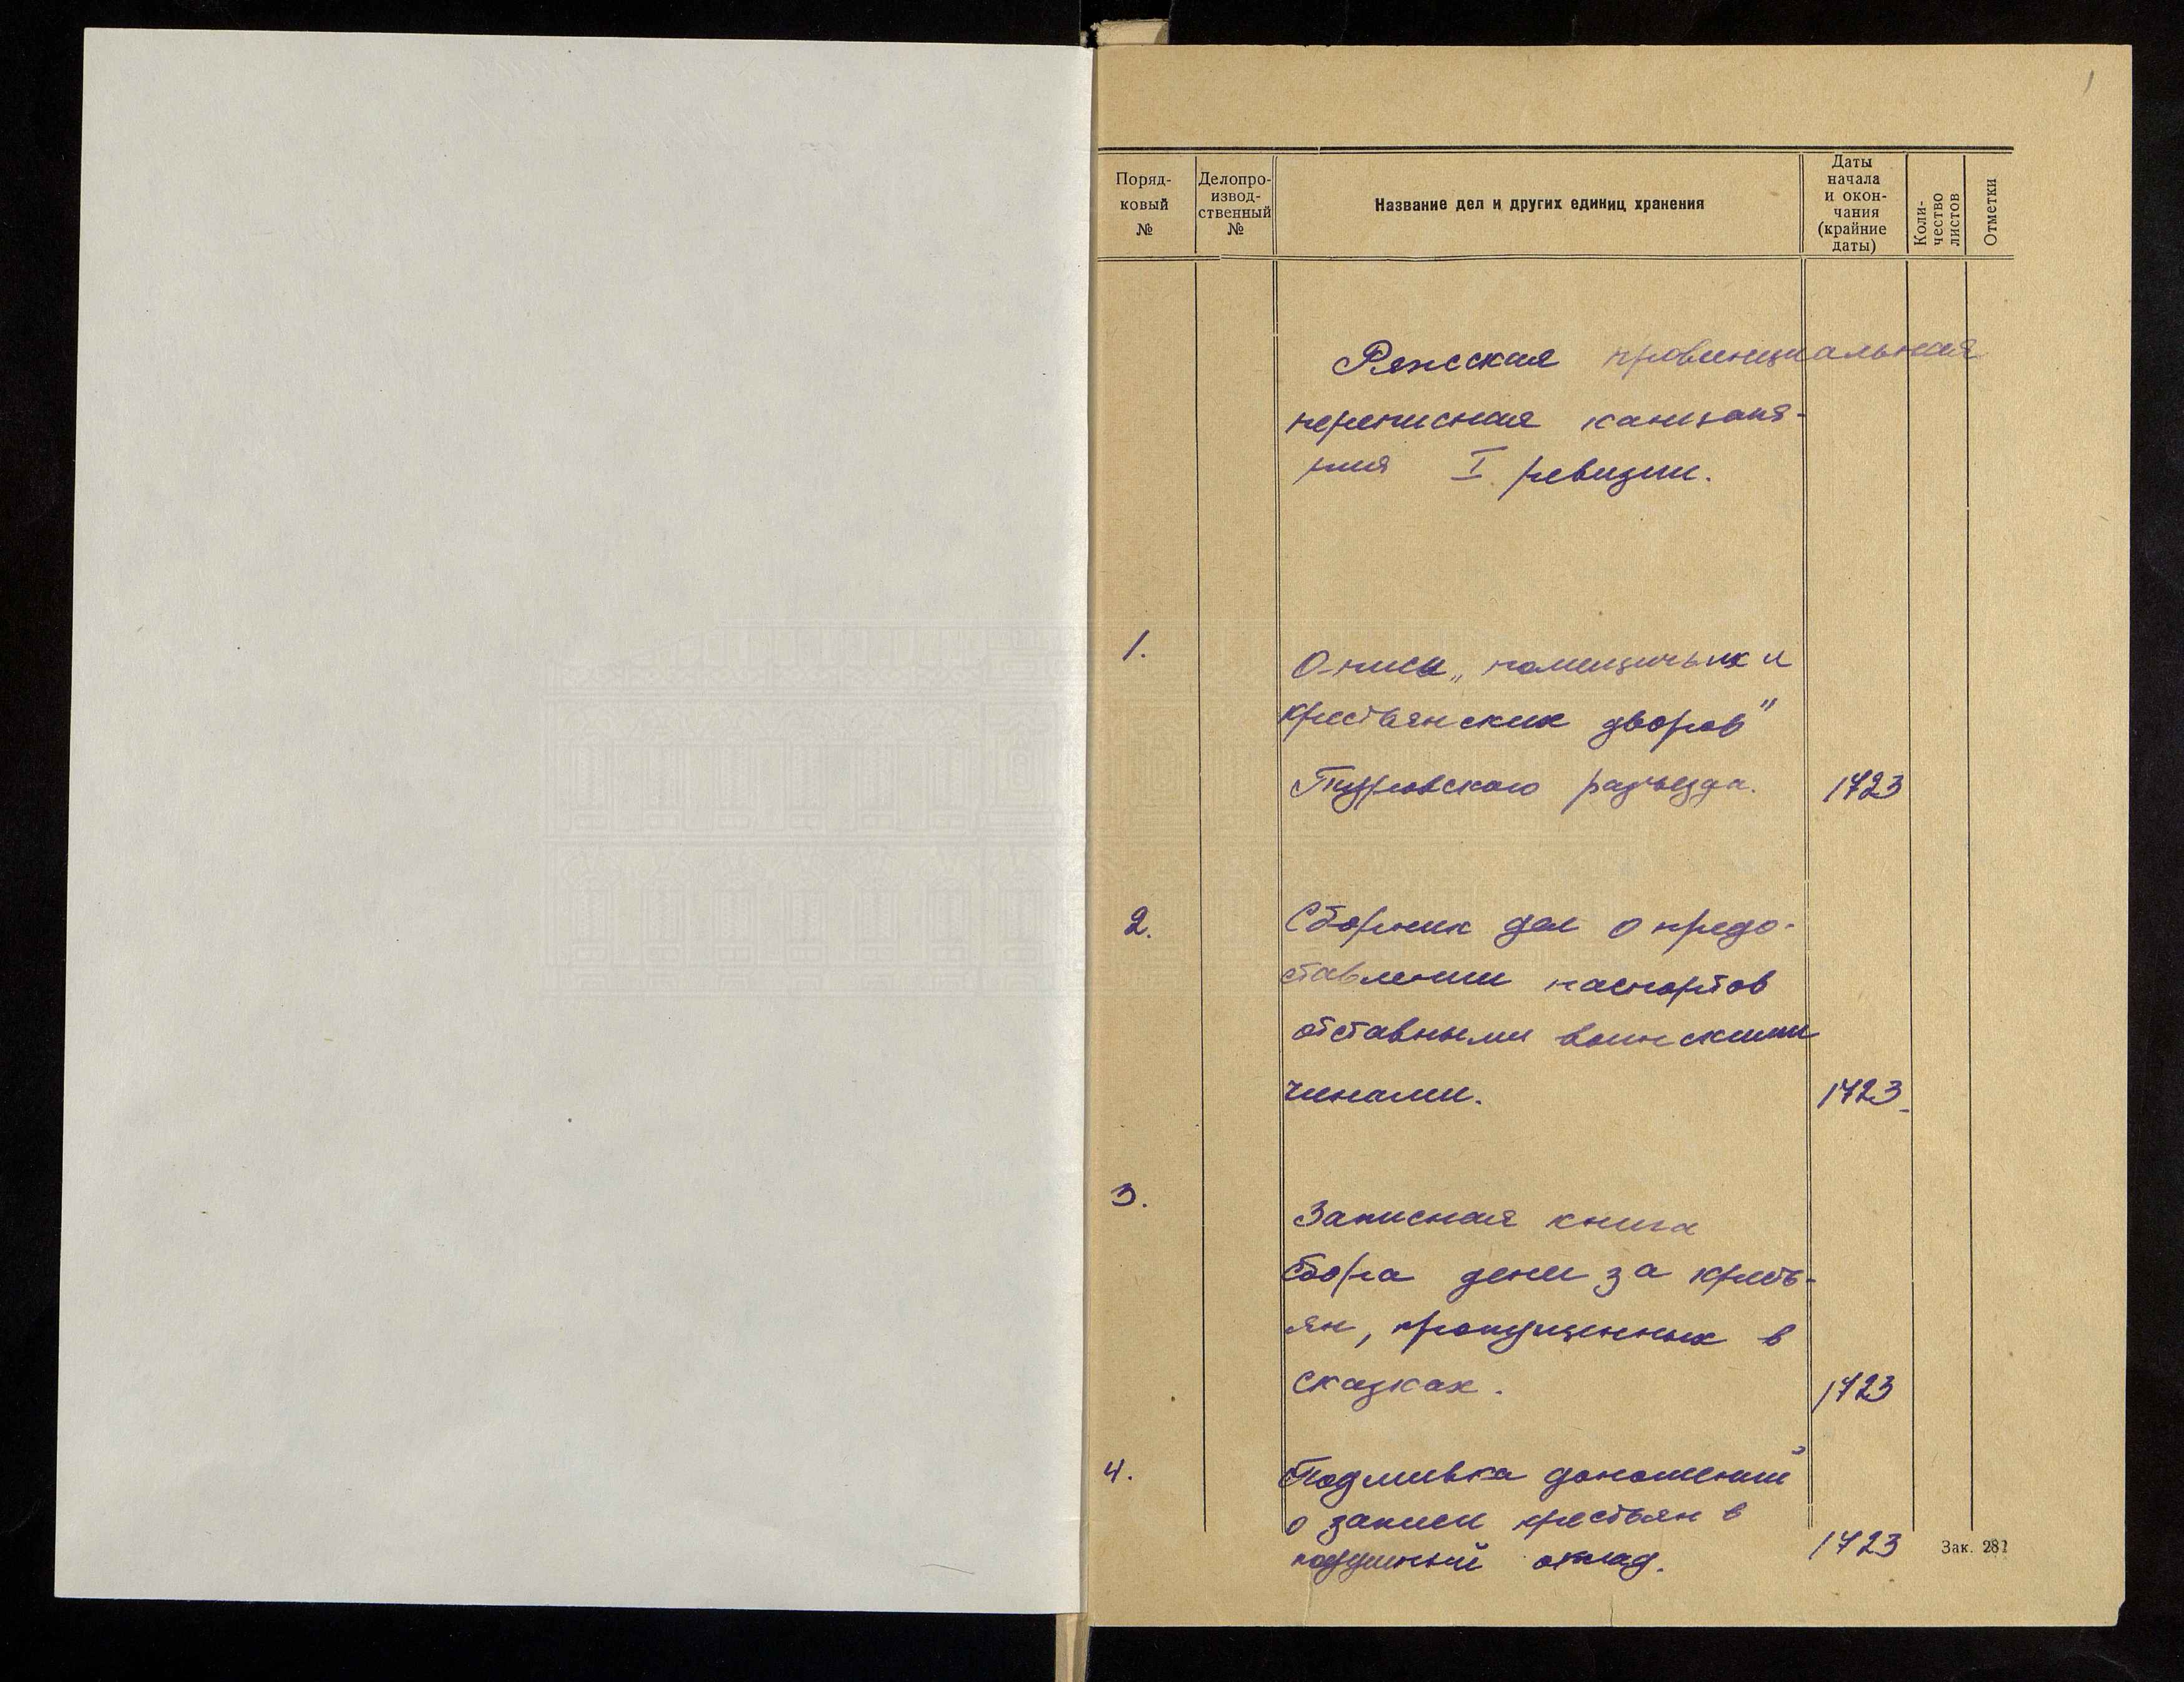 1
Поряд-
ковый
№
Делопро-
извод-
ственный
№
Название дел и других единиц хранения
Даты
начала
и окон-
чания
(крайние
даты)
Коли-
чество
листов
Отметки
Ряжская провинциальная
переписная канцеля-
рия I ревизии.
1.
Описи „помещичьих и
крестьянских дворов"
разъезда.
1723
2.
Сборник дел о предо-
ставлении паспортов
отставными воинскими
чинами.
1723
3.
Записная книга
сбора денег за кресть-
ян, пропущенных в
сказках.
1723
4.
Подшивка доношений
о записи крестьян в
подушный оклад.
1723
Зак. 281